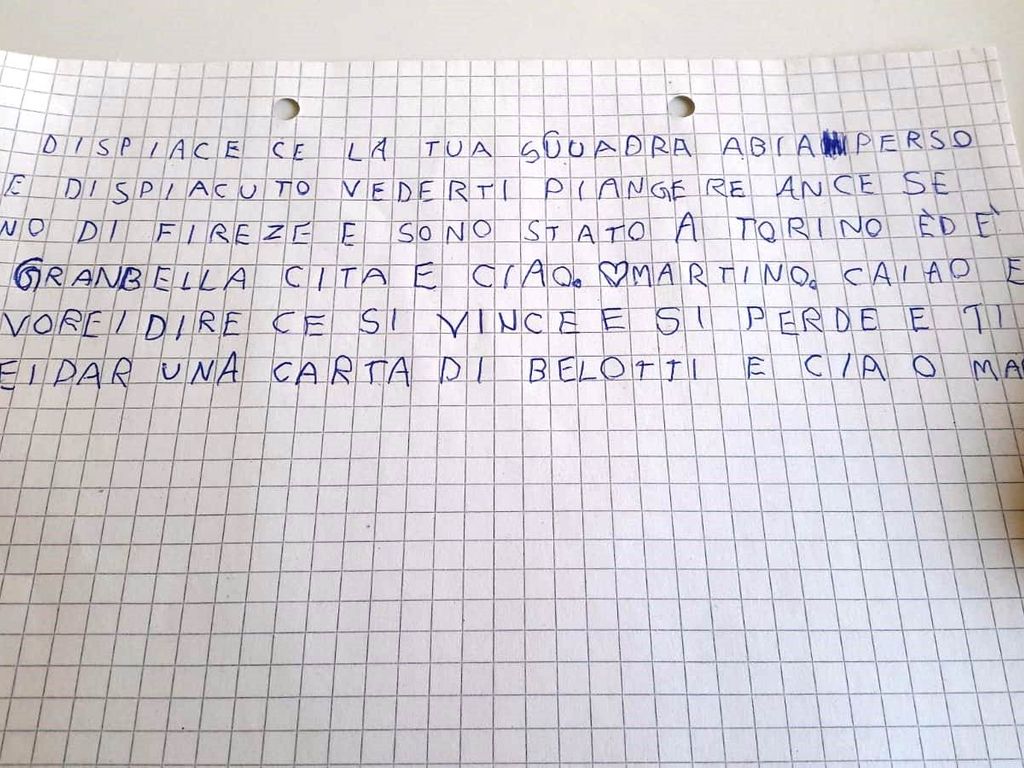 DISPIACE CE LA TUA SQUADRA ABIA PERSO
E DISPIACUTO VEDERTI PIANGERE ANCE SE
NO DI FIREZE E SONO STATO A TORINO ÈD È
GRANBELLA CITA E CIAO. ♡MARTINO. CAIAO E
VOREI DIRE CE SI VINCE E SI PERDE E TI
EI DAR UNA CARTA DI BELOTTI E CIAO MA